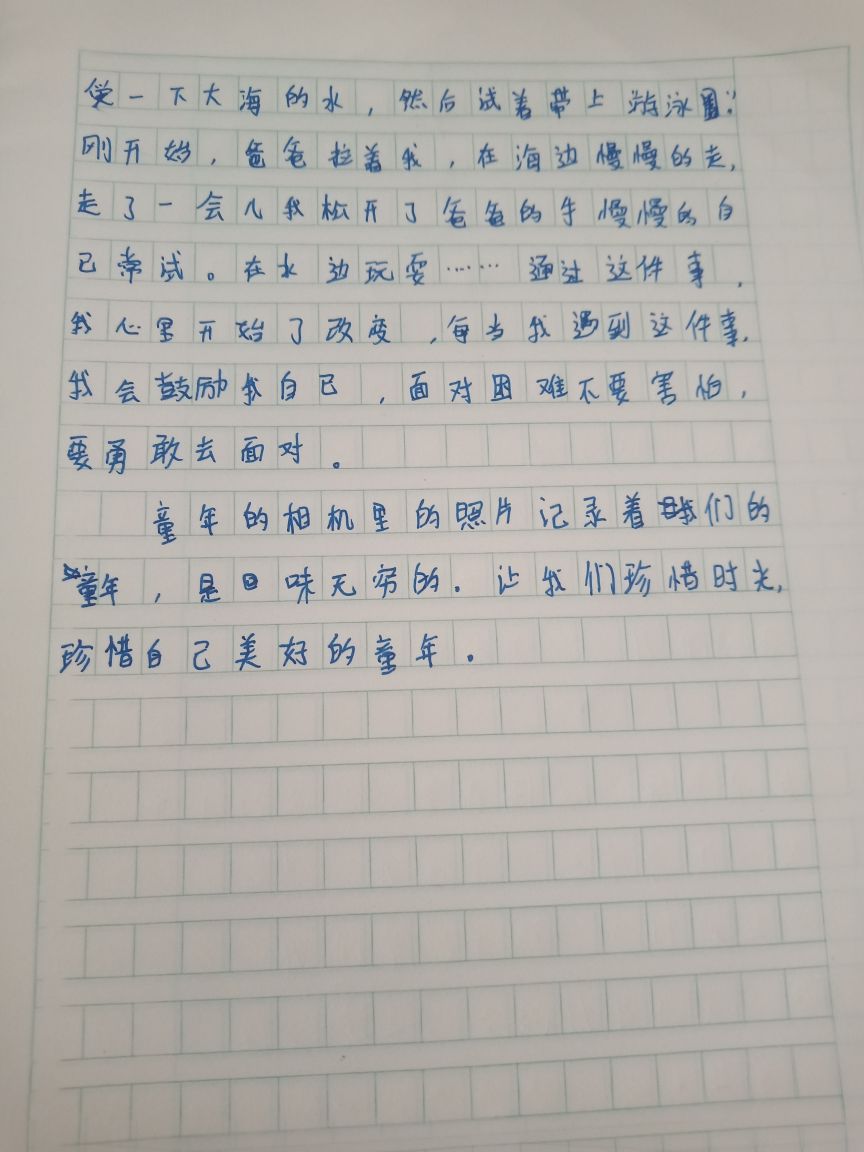 觉一下大海的水，然后试着带上游泳圈."
刚开始，爸爸拉着我，在海边慢慢的走,
走了一会儿我松开了爸爸的手慢慢的自
已常试。在水边玩耍……通过这件事,
我心里开始了改变,每当我遇到这件事,
我会鼓励我自已,面对困难不要害怕,
要勇敢去面对。
童年的相机里的照片记录着我们的
童年,是回味无穷的.让我们珍惜时光,
珍惜自己美好的童年.